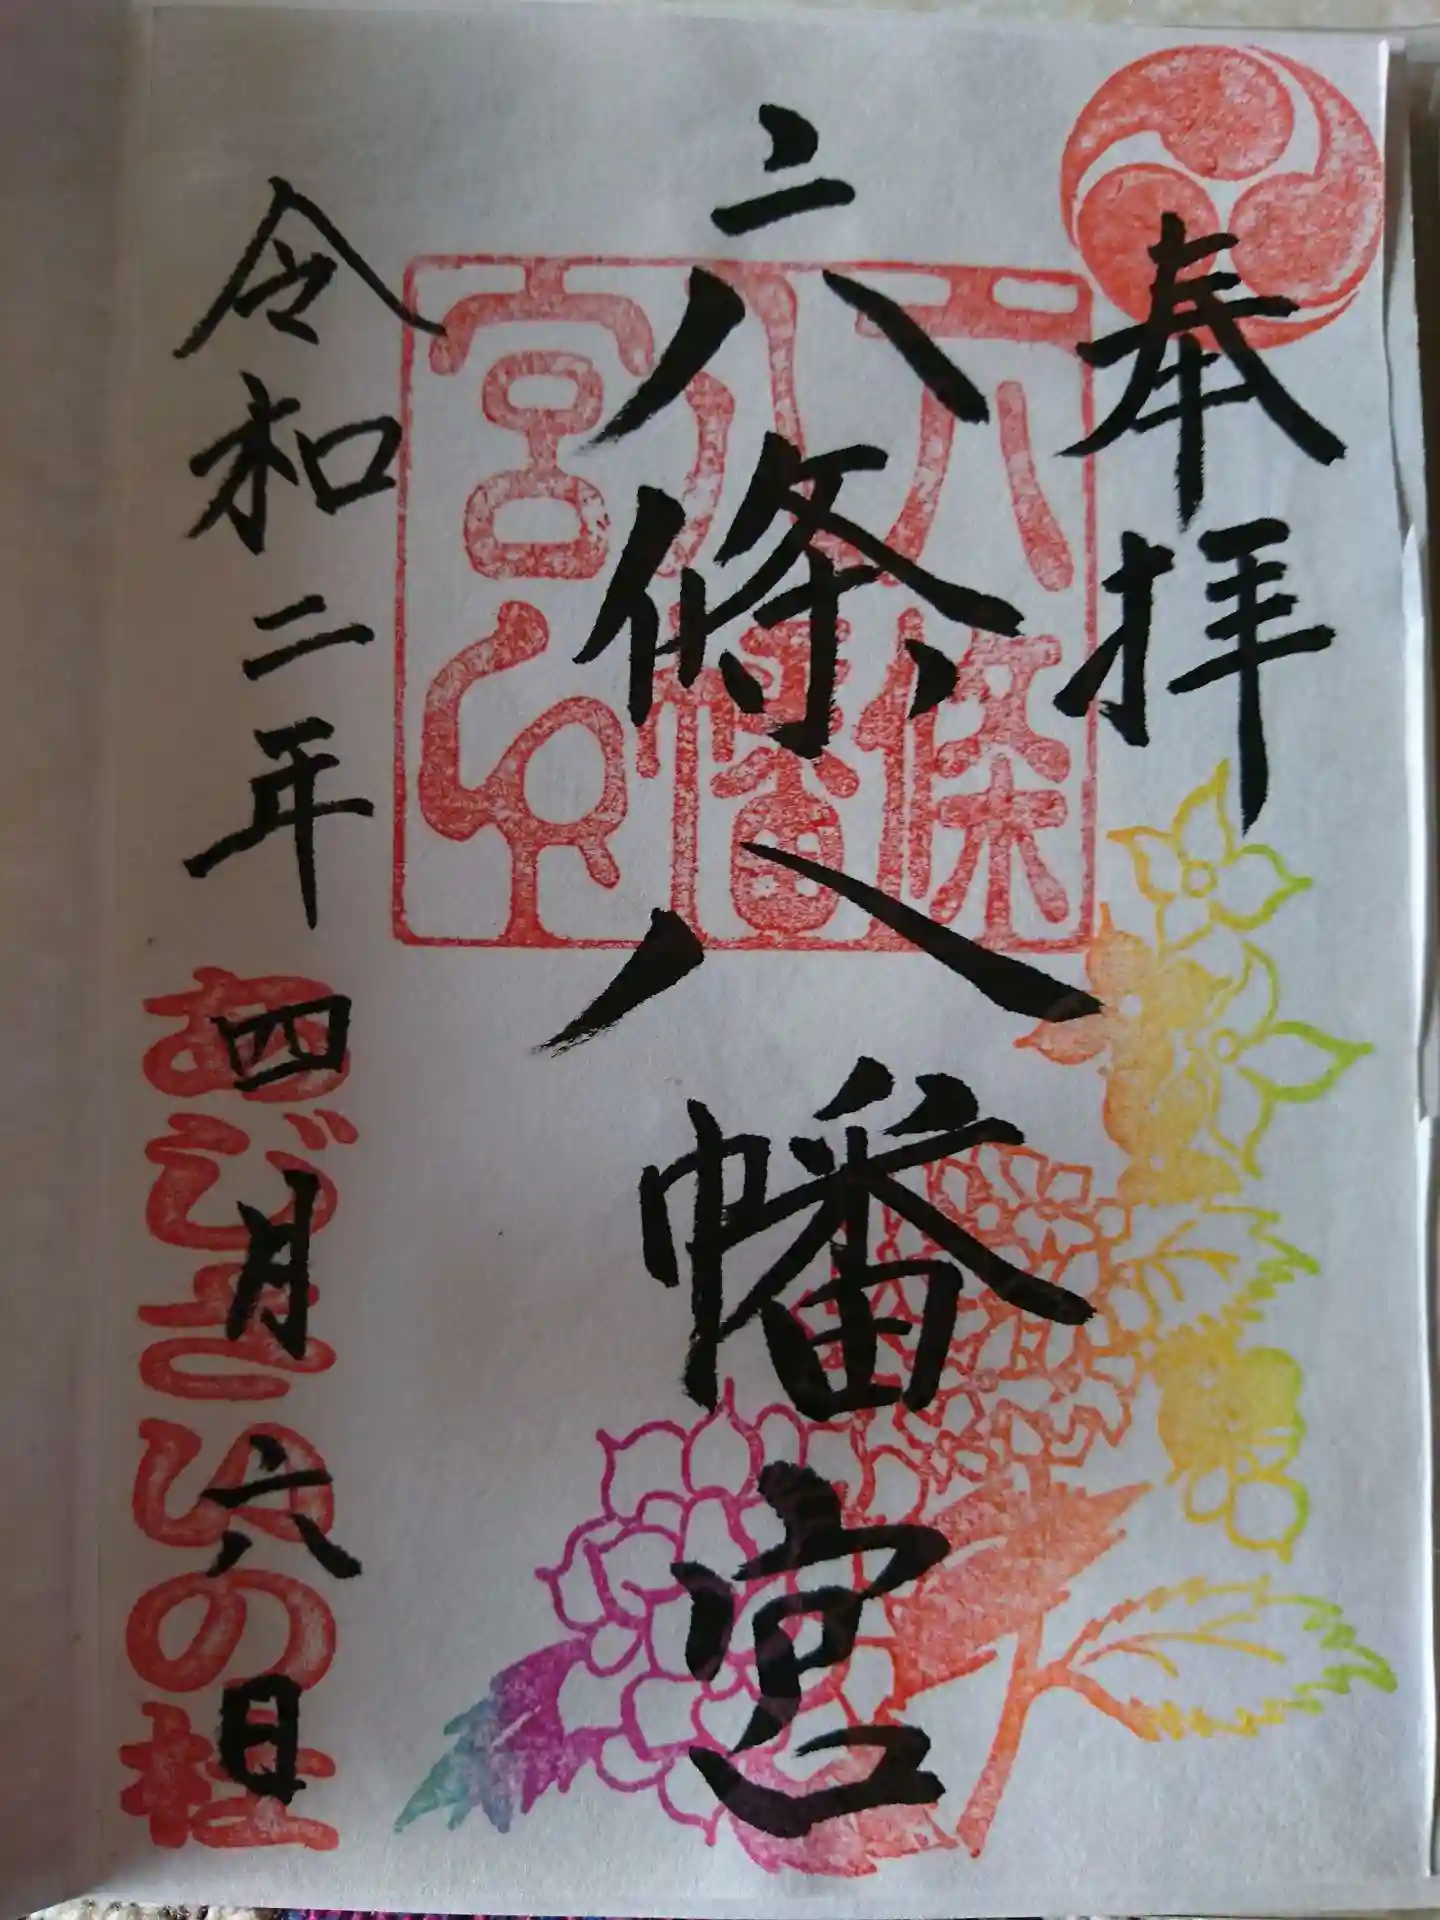 奉拝
六條八幡宮
六條
八幡
宮印
令和二年四月六日
あじさいの社